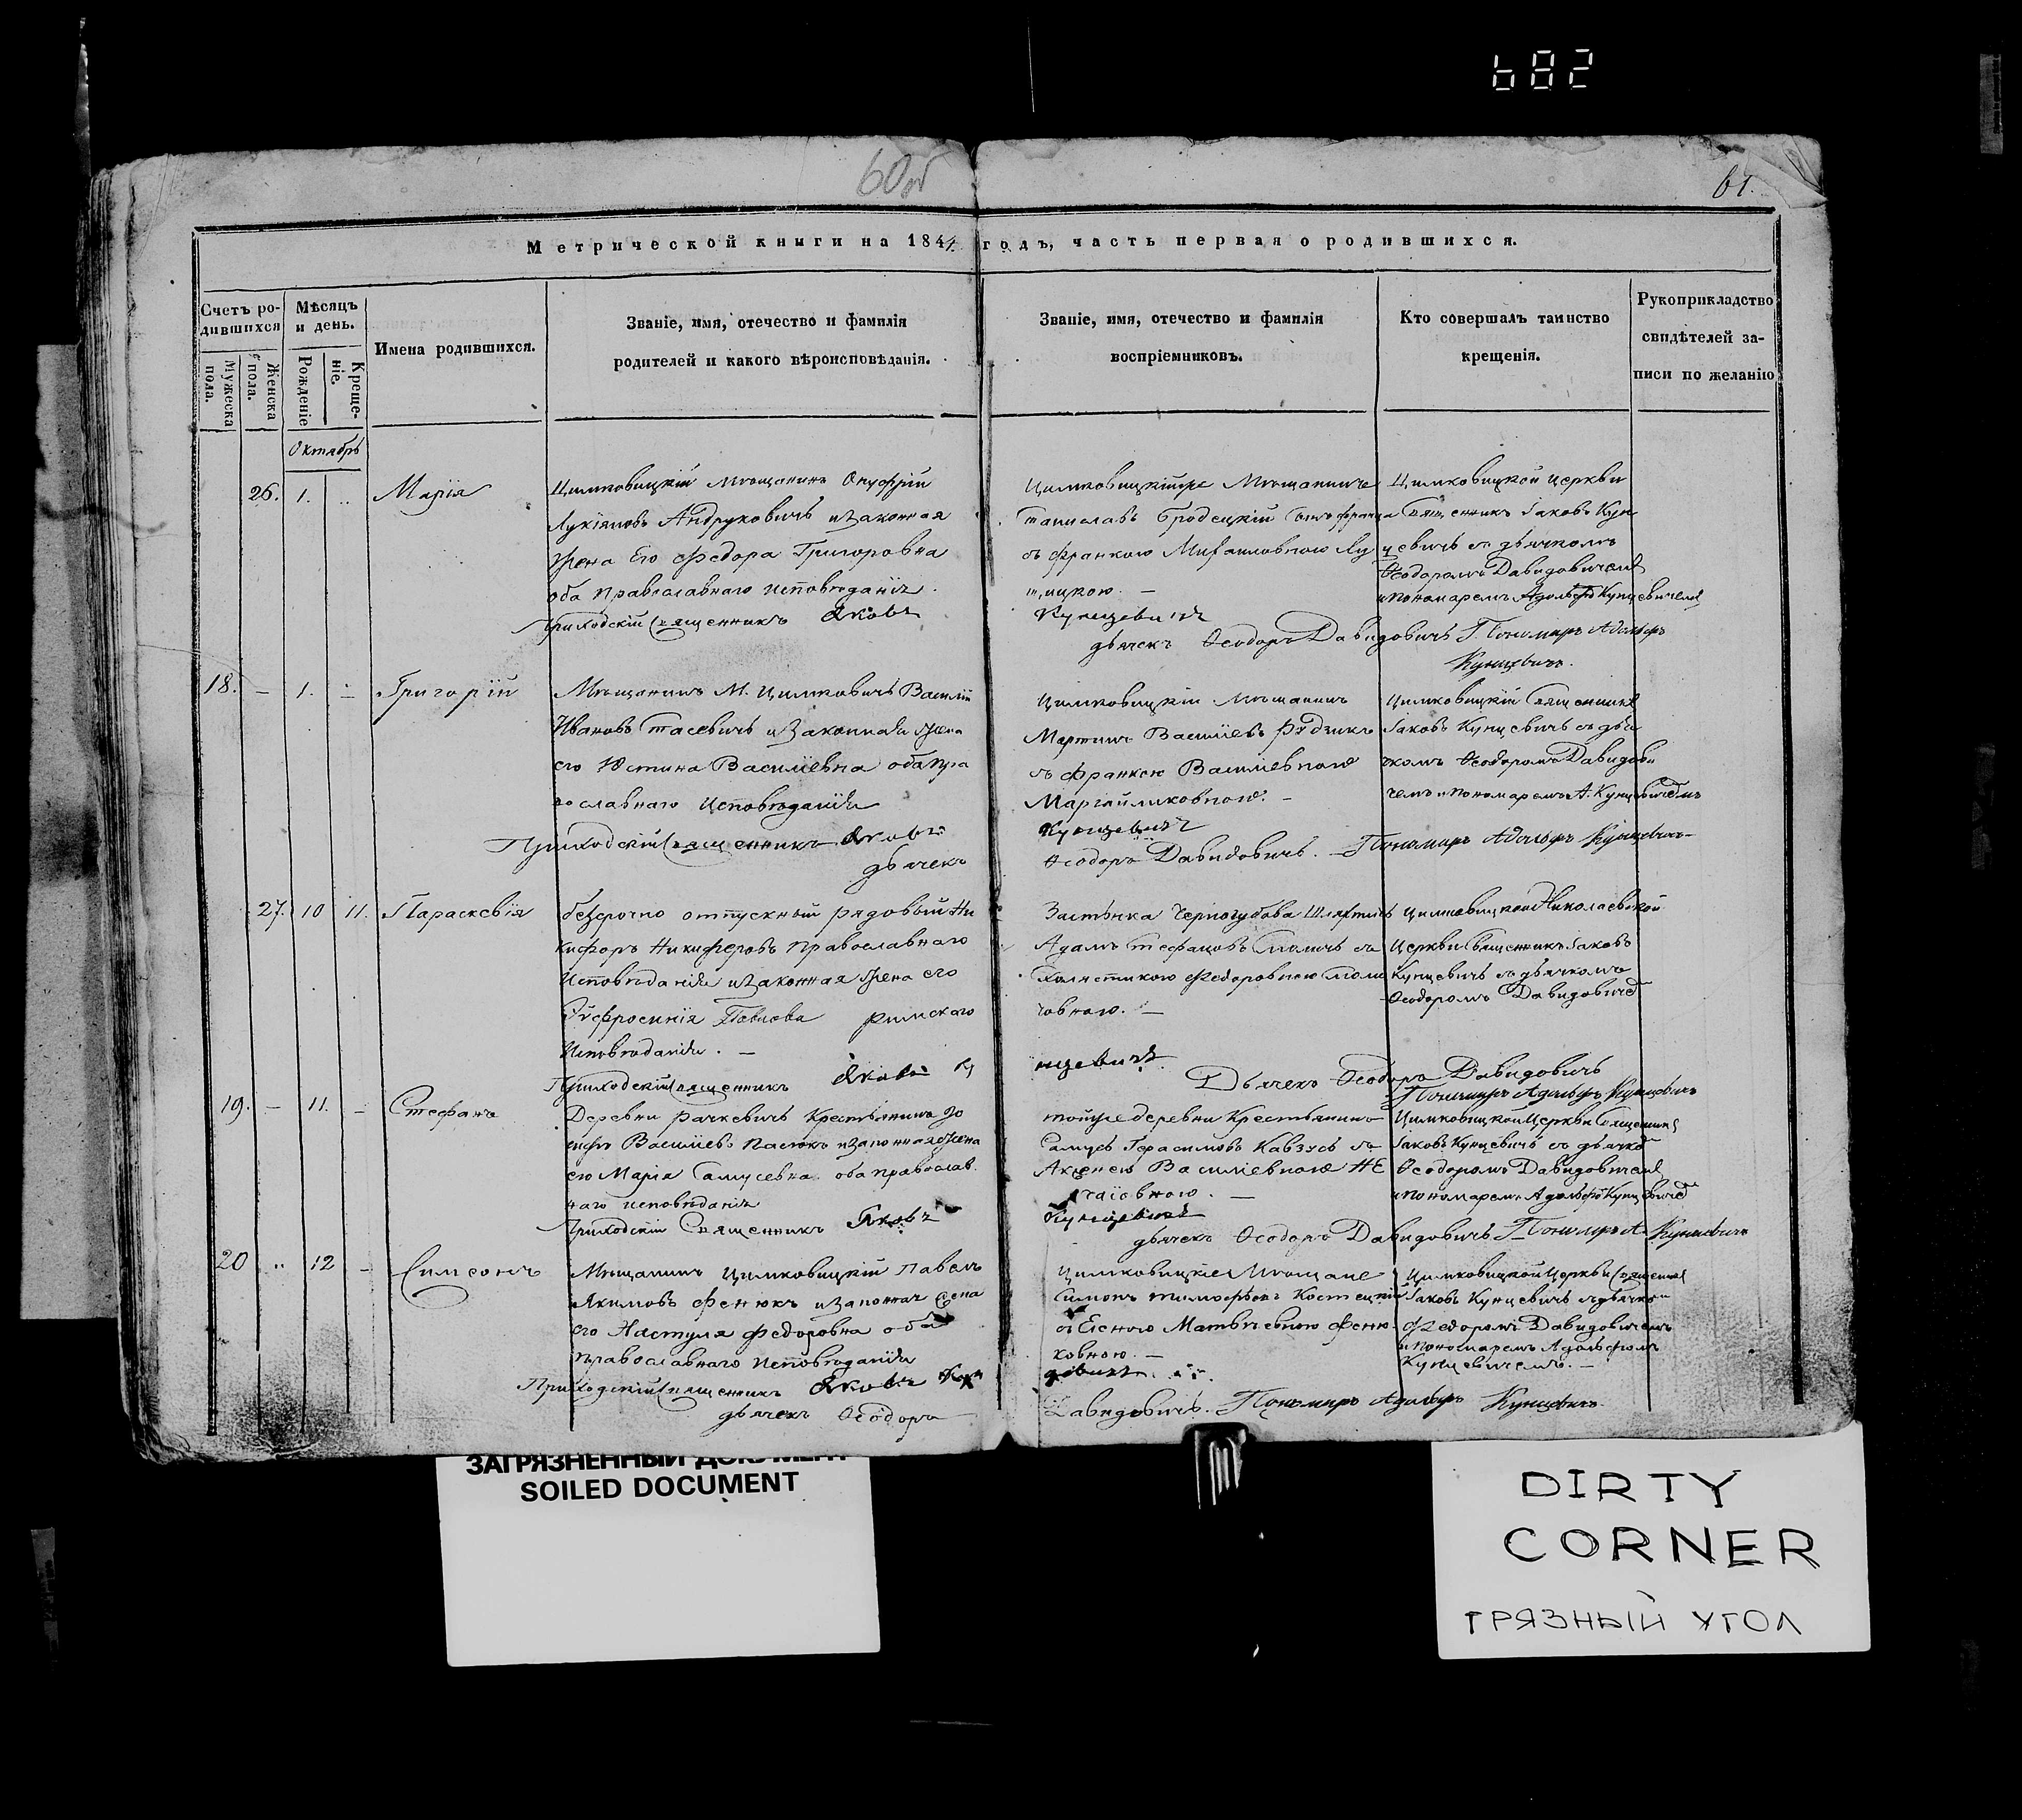 682
60об
61.
Метрической книги на 1844 годъ, часть первая о родившихся.
Счетъ родившихся
Мужеска пола.
Женска пола.
Мѣсяцъ и день.
Рожденіе
Крещеніе.
Имена родившихся.
Званіе, имя, отечество и фамилія
родителей и какого вѣроисповѣданія.
Званіе, имя, отечество и фамилія
воспріемниковъ.
Кто совершалъ таинство
крещенія.
Рукоприкладство
свидѣтелей за-
писи по желанію
Октябрь
26. 1. Марія
Цимковицкій мѣщанинъ Онуфрій
Лукіяновъ Андруковичъ и законная
жена Его Федора Григоровна
оба православнаго исповѣданія.
Приходскій Священникъ Яковъ
Мѣщанинъ
Станиславъ Бродецкій
съ Франкою Михаиловною
Кунцевичъ
дьячекъ Ѳеодоръ Давидовичъ Пономарь Адольфъ
Кунцевичъ.
Цимковицкой церкви
Священникъ Іаковъ Кун
цевичъ съ дьячкомъ
Ѳеодоромъ Давидовичемъ
и пономаремъ Адольфо Кунцевичемъ
18. – 1. – Григорій
Мѣщанинъ М. Цимковичъ Василій
Ивановъ Стасевичъ и законная жена
его Юстина Василіевна оба пра
вославнаго исповѣданія
Приходскій Священникъ Яковъ
дьячекъ
Цимковицкій мѣщанинъ
Мартинъ Василіевъ Рудзикъ
съ Франкою Василіевною
Кунцевичъ
Ѳеодоръ Давидовичъ. Пономарь Адольфъ Кунцевичъ
Цимковицкій Священникъ
Іаковъ Кунцевичъ съ дья
чкомъ Ѳеодоромъ Давидови
чемъ и пономаремъ А. Кунцевичемъ
27. 10 11. Параскевія
безсрочно отпускный рядовый Ни
кифоръ Никифоровъ православнаго
исповѣданія и законная жена его
Эуфросинія Павлова римскаго
исповѣданія. –
Приходскій Священникъ Яковъ Ку
Застѣнка Черногубова Шляхтичъ
Адамъ Стефановъ
Федоровною
човною. –
нцевичъ.
Дьячекъ Ѳеодоръ Давидовичъ
Пономарь Адольфъ Кунцевичъ
Цимковицкой Николаевской
Церкви Священникъ Іаковъ
Кунцевичъ съ дьячкомъ
Ѳеодоромъ Давидовиче
19. – 11. – Стефанъ
Деревни Рачкевичъ Крестьянинъ Іо
сифъ Василіевъ Пасюкъ и законная жена
его Марія Самусевна оба православ
наго исповѣданія
Приходскій Священникъ Яковъ
тойже деревни Крестьянинъ
Самусь Герасимовъ Кавзусъ съ
Аксенею Василіевною
Кунцевичъ
дьячекъ Ѳеодоръ Давидовичъ Пономарь А. Кунцевичъ
Цимковицкой Церкви Священникъ
Іаковъ Кунцевичъ съ дьячко
Ѳеодоромъ Давидовичемъ
и пономаремъ Адольфо Кунцевиче
20 12 – Симеонъ
Мѣщанинъ Цимковицкій Павелъ
Якимовъ Фенюкъ и законная жена
его Настуля Федоровна оба
православнаго исповѣданія
Приходскій Священникъ Яковъ
дьячекъ Ѳеодоръ
Цимковицкіе Мѣщане
Симонъ Тимофѣевъ Костецкій
съ Еленою Матвѣевною Феню
ковною. –
Давидовичъ. Пономарь Адольфъ Кунцевичъ.
Цимковицкой Церкви Священникъ
Іаковъ Кунцевичъ съ дьячком
Федоромъ Давидовичемъ
и пономаремъ Адольфомъ
Кунцевичемъ. –
ЗАГРЯЗНЕННЫЙ ДОКУМЕНТ
SOILED DOCUMENT
DIRTY
CORNER
ГРЯЗНЫЙ УГОЛ